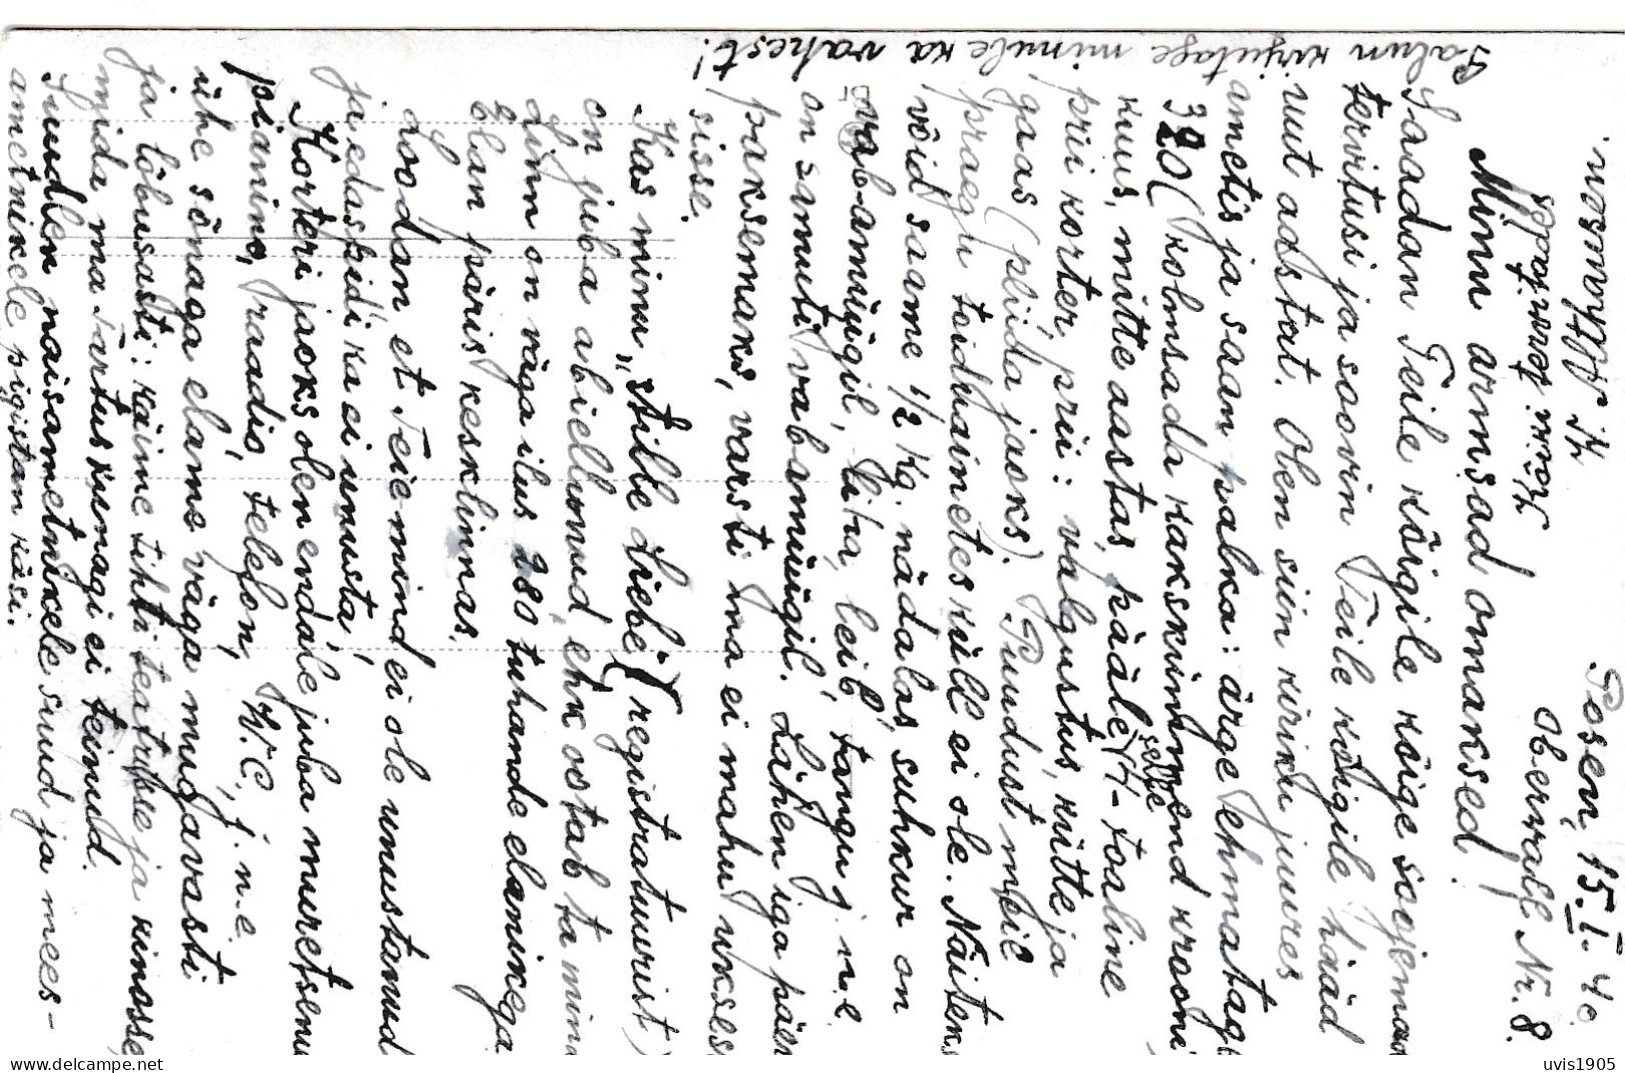 Posen, 15.I.40.
Oberwall Nr. 8.
Minu armsad omaksed!
Saadan Teile kõigile kõige soojemad
tervitusi ja soovin Teile kõigile hääd
uut aastat. Olen siin kiriku juures
ametis ja saan palka: ärge ehmatage
320 (kolmsada kakskümmend krooni
kuus, mitte aastas, pääle selle 4-toaline
prii korter, prii: valgustus, kütte ja
gaas (pliida jaoks). Puudust meil
praegu toiduainetes küll ei ole. Näiteks
võid saame 1/2 kg. nädalas, suhkur on
vaba-müügil, liha, leib, tangu j.n.e.
on samuti vabamüügil. Lähen iga päev
paksemaks, varsti ma ei mahu uksest
sisse.
Kas minu „stille Liebe" (registratuurist)
on juba abiellunud, ehk ootab ta mind
Linn on väga ilus, 280 tuhande elanikega
Elan päris kesklinnas.
Loodan et Teie mind ei ole unustanud
ja edaspidi ka ei unusta,
Korteri jaoks olen endale juba muretsenud
pianino, raadio, telefon, W.C., j.n.e.
ühe sõnaga elame väga mugavasti
ja lõbusasti: käime tihti teatrisse ja kinosse,
mida ma Tartus kunagi ei teinud.
Suudlen naisametnikele suud ja mees-
ametnikele pigistan käsi.
Palun kirjutage minule ka vahest!